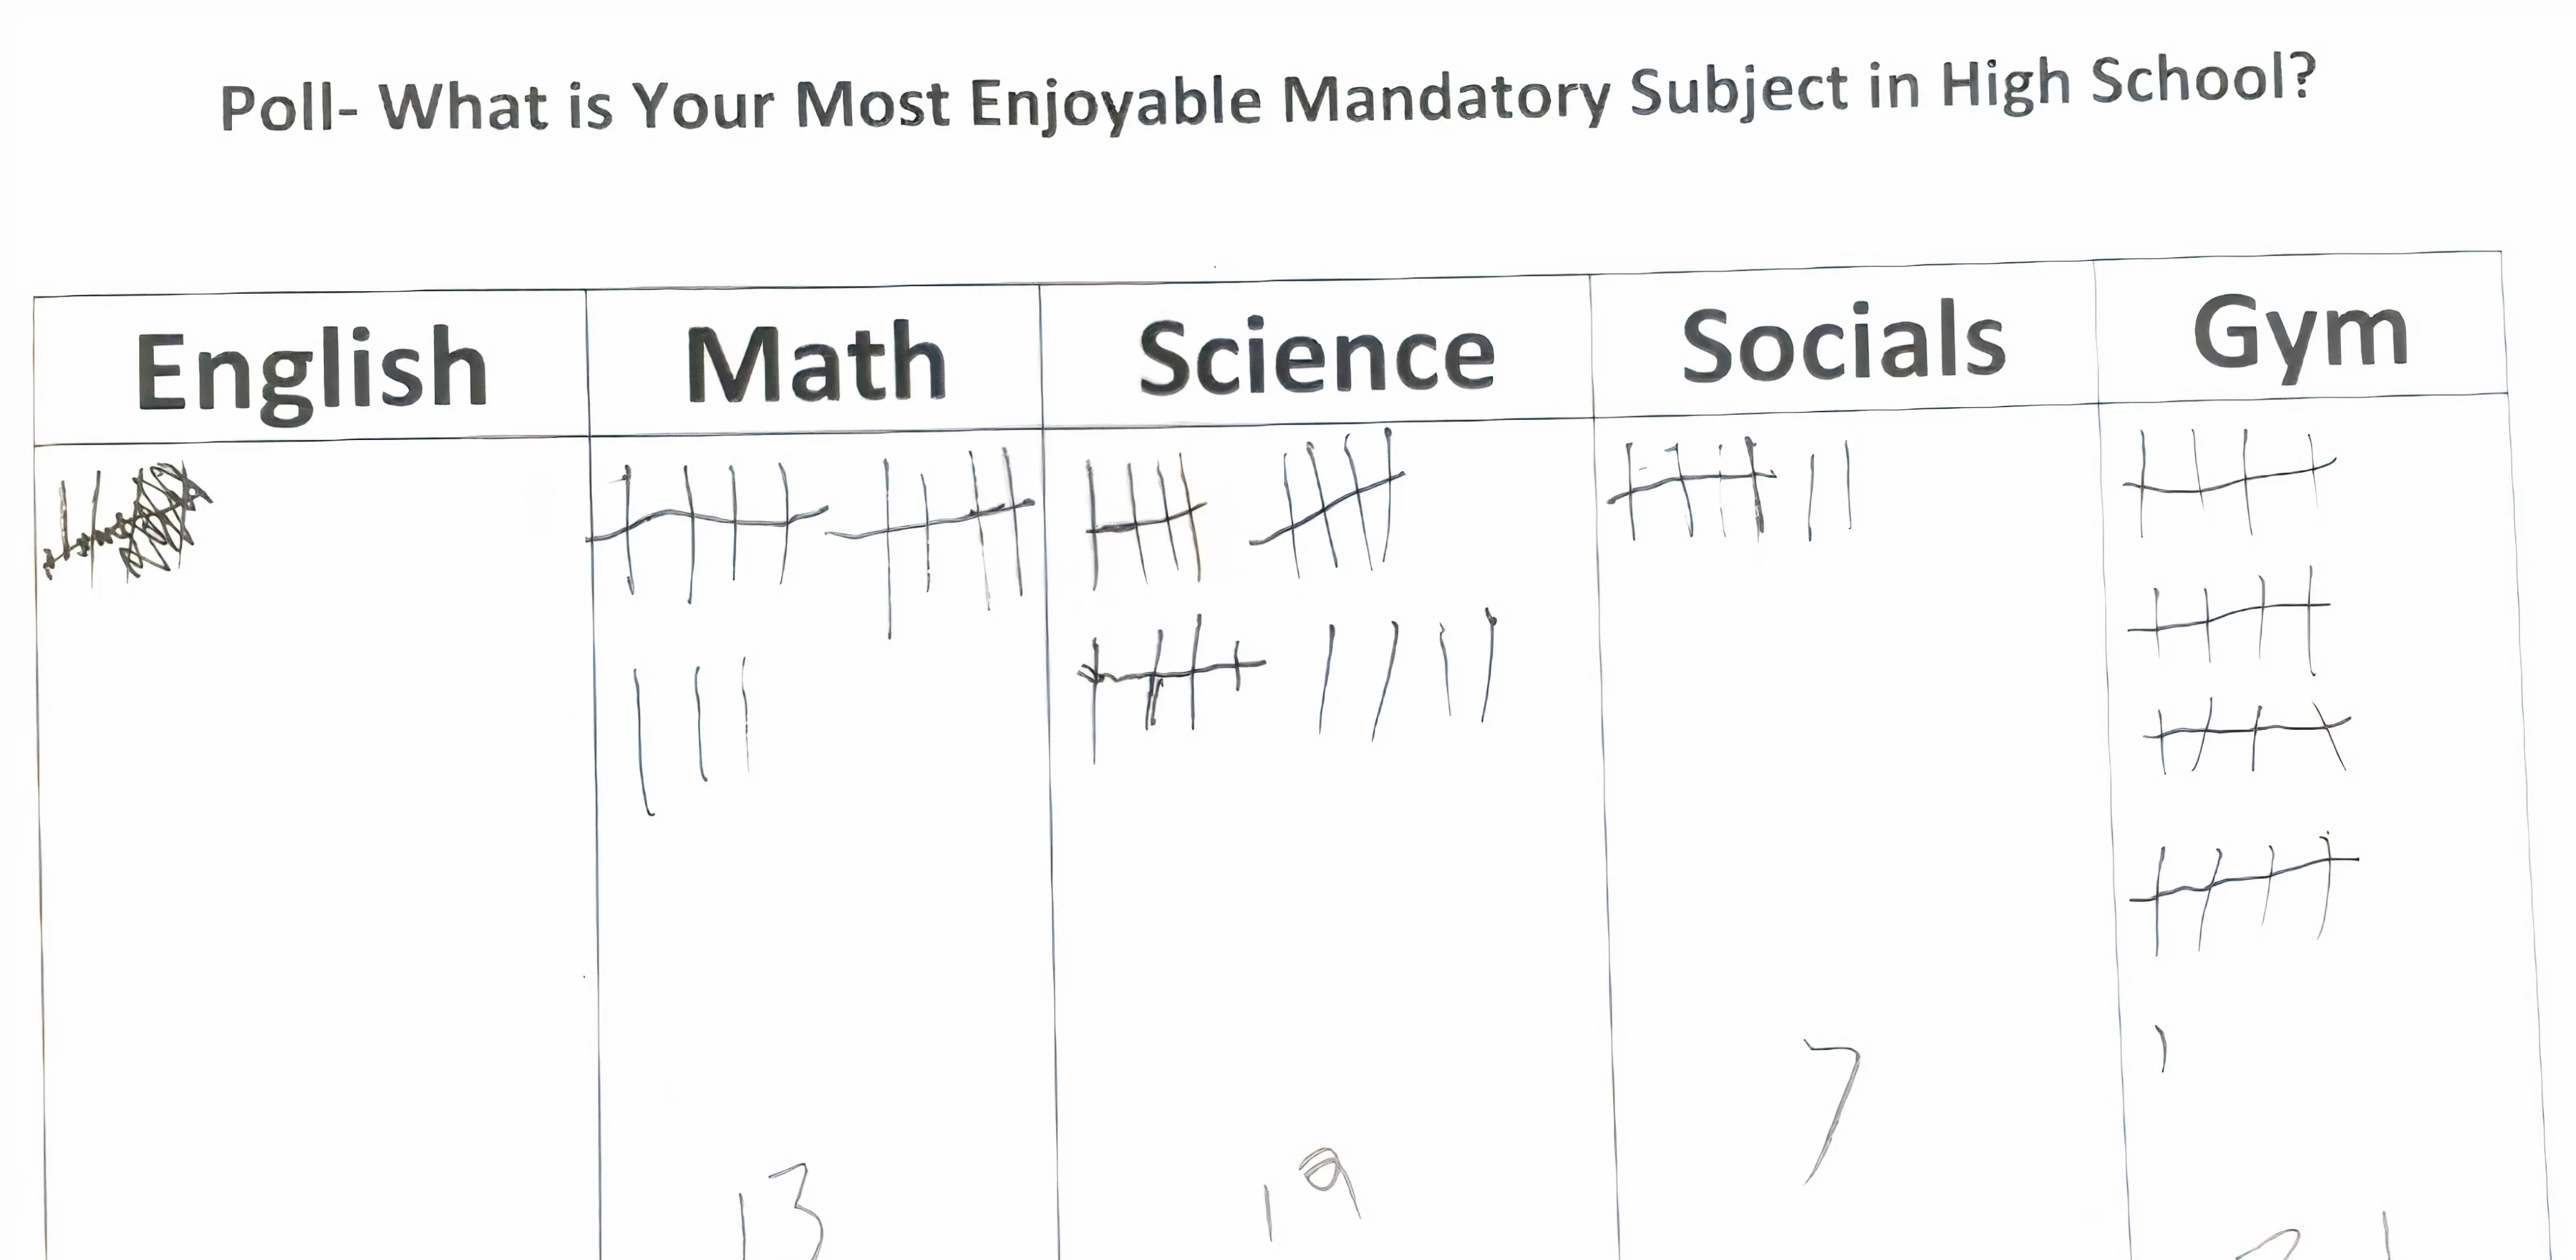 Poll- What is Your Most Enjoyable Mandatory Subject in High School?
English Math Science Socials Gym
7
13 19 21